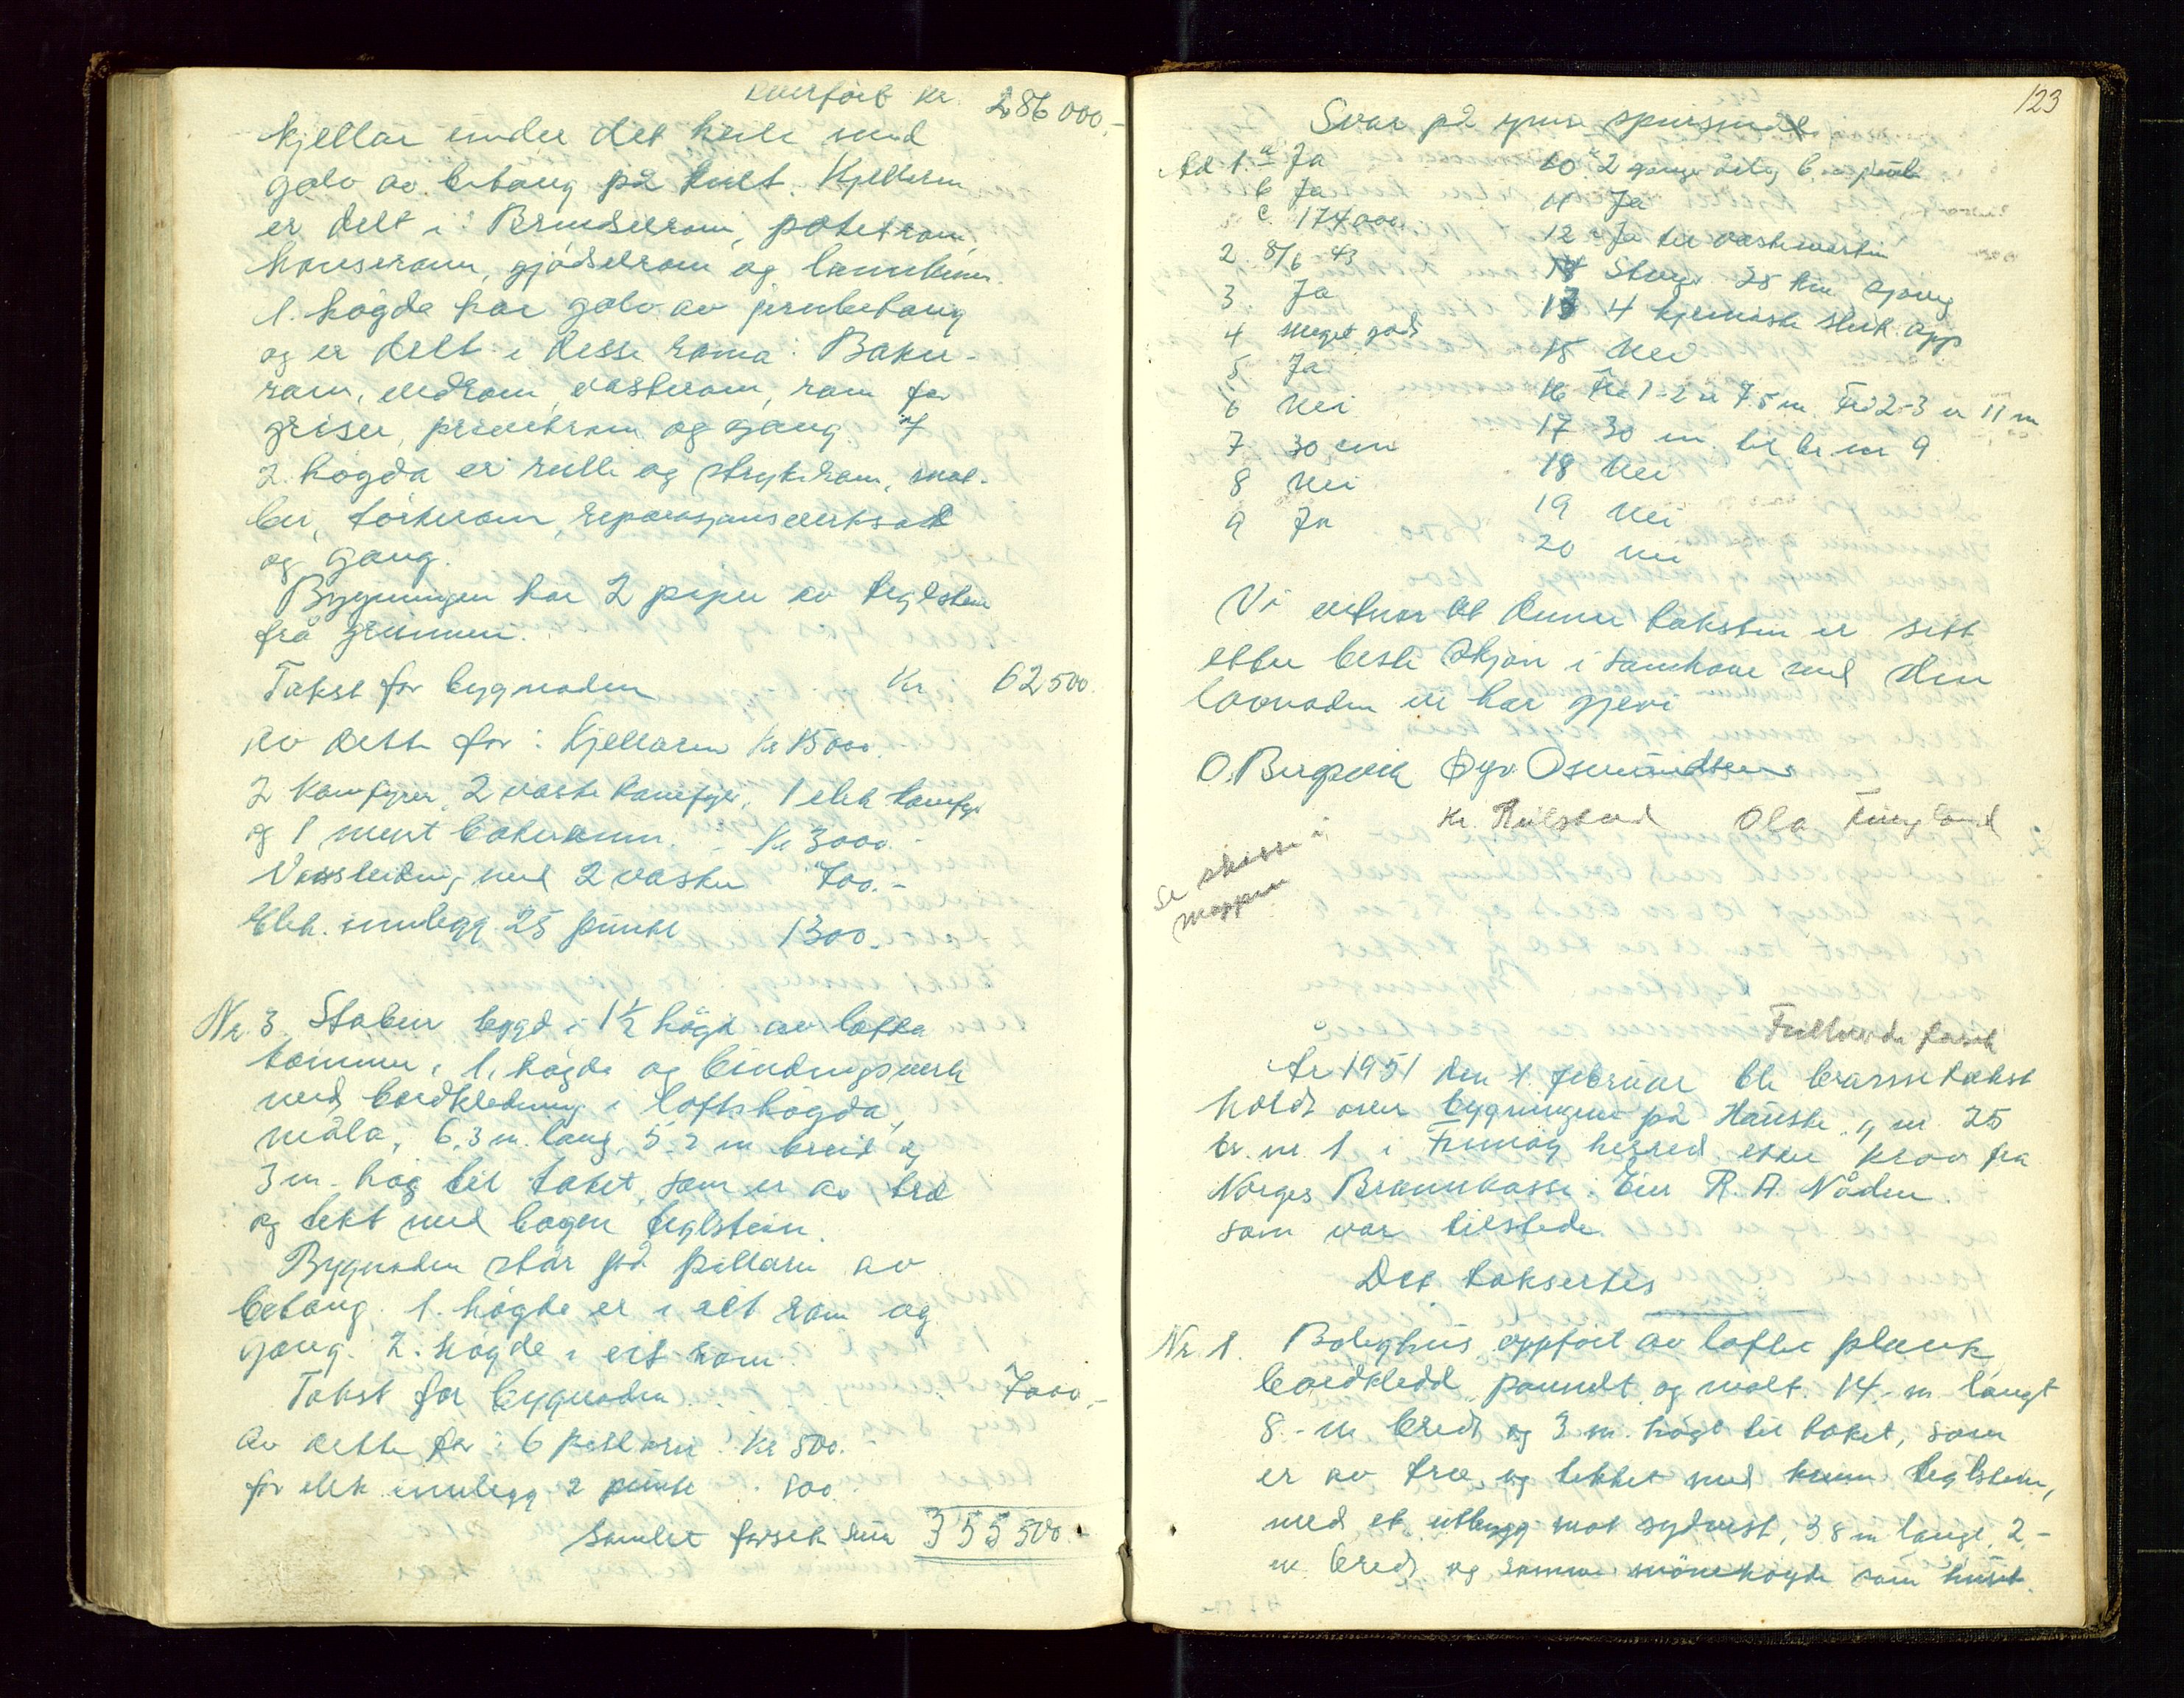 Overført kr. 286 000.-
kjellar under det heile med
golv av betong på kult. Kjelleren
er delt i: Brendselrom, potetrom,
hønserom, gjødselrom og
1. høgda har golv av jernbetong
og er delt i desse roma: Baker-
rom, vedrom, vaskerom, rom for
griser, privetrom og gang. I
2. høgda er rulle og strykerom, mat-
bu, tørkerom, reparasjonsverksted
og gang.
Bygningen har 2 piper av teglstein
frå grunnen.
Takst for bygnaden Kr. 62 500.
Av dette for: Kjellaren Kr 15000.
2 komfyrer, 2 vaske komfyr, 1 elek komfyr
og 1 murt bakerovn. Kr 3000.-
Vassleidning med 2 vasker 700.-
Elek. innlegg 25 punkt 1300.-
Nr. 3. Stabur bygd i 1½ høgd av lafta
tømmer i 1. høgda og bindingsverk
med bordkledning i loftshøgda,
måla, 6,3 m. lang, 5.2 m breid og
3 m. høg til taket, som er av tre
og tekt med bogen teglstein.
Bygnaden står på pillarer av
betong. 1. høgde er i eit rom og
gang. 2. høgde i eit rom.
Takst for bygnaden 7000.-
Av dette for: 6 pillarer Kr 500.-
for elek innlegg 2 punkt 100.
Samlet forsik. sum 355 500.-
123
Svar på ymse spursmål
Ad 1. a Ja
b Ja
c. 174000
2. 8/6 43
3 Ja
4 meget god
5 Ja
6 Nei
7 30 cm
8 Nei
9 Ja
10. a 2 gange årleg b.
11 Ja
12 Ja
14 25 km
13 4 kjemiske sluk. app
15 Nei
16 Fra 1-2 er 7.5 m. Fra 2-3 er 11 m
17 30 m. til br nr 9
18 Nei
19 Nei
20 Nei
Vi vitner at denne taksten er sett
etter beste skjøn i samhøve med den
lovnaden vi har gjevi
O. Bergsvik Øyv. Osmundsen
Kr. Hülstad Ola Tungland
Se skisse i
mappen
Fullverdi forsik
År 1951 den 1. februar ble branntakst
holdt over bygningene på Hauske g. nr 25
br. nr. 1 i Finnøy herred etter krav fra
Norges Brannkasse. Eier R. A. Nåden
som var tilstede.
Det taksertes
Nr. 1. Bolighus oppført av laftet plank
bordkledd, pannelt og malt. 14.- m. langt
8.- m. bred og 3 m. høgt til taket, som
er av tre og tekket med krum teglstein,
med et utbygg mot sydvest, 3.8 m langt, 2.-
m. bred og samme mønehøgde som huset.